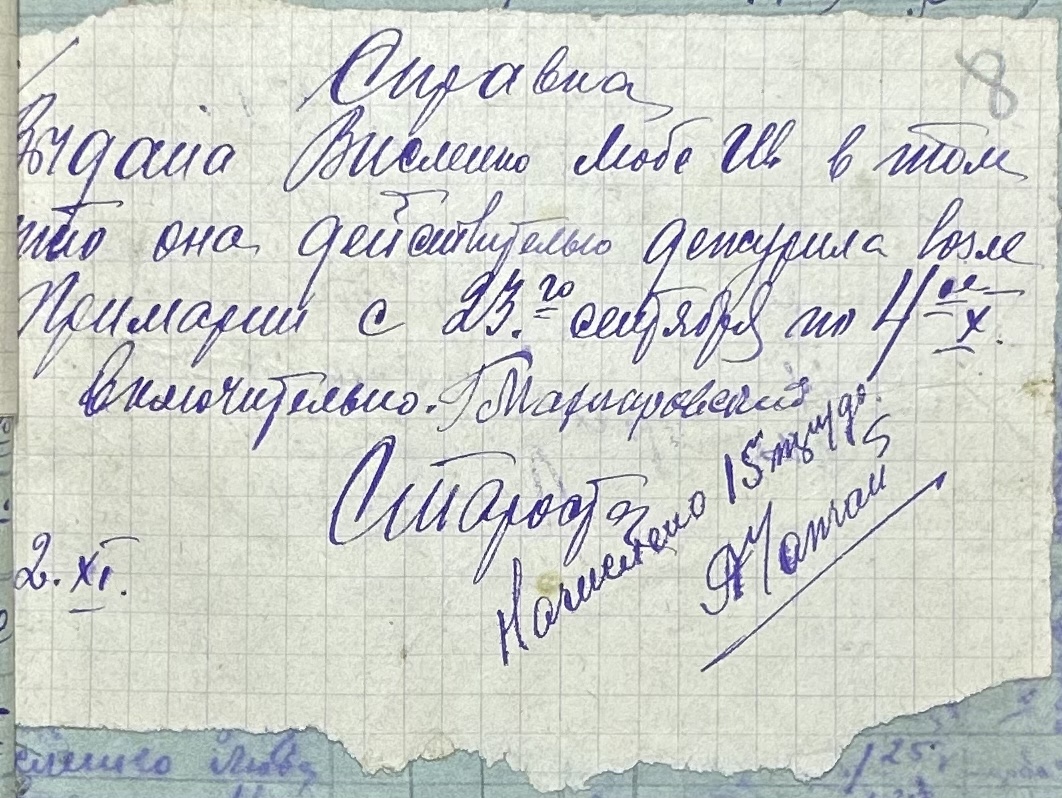 8
Справка
Выдана Висленко Любе Ив. в том
что она действительно дежурила возле
Примарии с 23.го сентября по 4ое X.
включительно.
Староста
Начислено 15 труд.
2. XI.
Любе
125